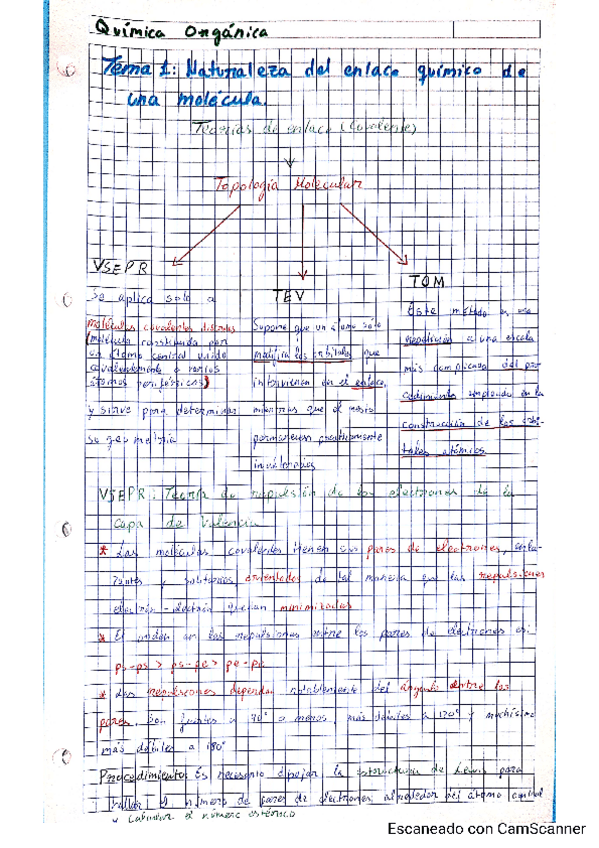 Química Orgánica
Tema 1: Naturaleza del enlace químico de
una molécula.
Teorías de enlace (Covalente)
Topología Molecular
VSEPR
TEV
TOM
Se aplica solo a
moléculas covalentes discretas
(molécula constituida por
un átomo central unido
covalentemente a varios
átomos periféricos)
y sirve para determinar
su geometría
Supone que un átomo sólo
modifica los orbitales que
intervienen en el enlace,
mientras que el resto
permanecen practicamente
inalterados
Este método es una
repetición a una escala
más complicada del pro-
cedimiento empleado en la
construcción de los orbi-
tales atómicos
VSEPR: Teoría de repulsión de los electrones de la
capa de Valencia
* Las moléculas covalentes tienen sus pares de electrones, enla-
zantes y solitarios, orientados de tal manera que las repulsiones
electrón-electrón quedan minimizadas
* El orden en las repulsiones entre los pares de electrones es:
ps-ps > ps-pe > pe-pe
* Las repulsiones dependen notablemente del ángulo entre los
pares. Son fuertes a 90° o menos, más débiles a 120° y muchísimo
más débiles a 180°
Procedimiento: Es necesario dibujar la estructura de Lewis para
hallar el número de pares de electrones alrededor del átomo central
y calcular el número estérico
Escaneado con CamScanner